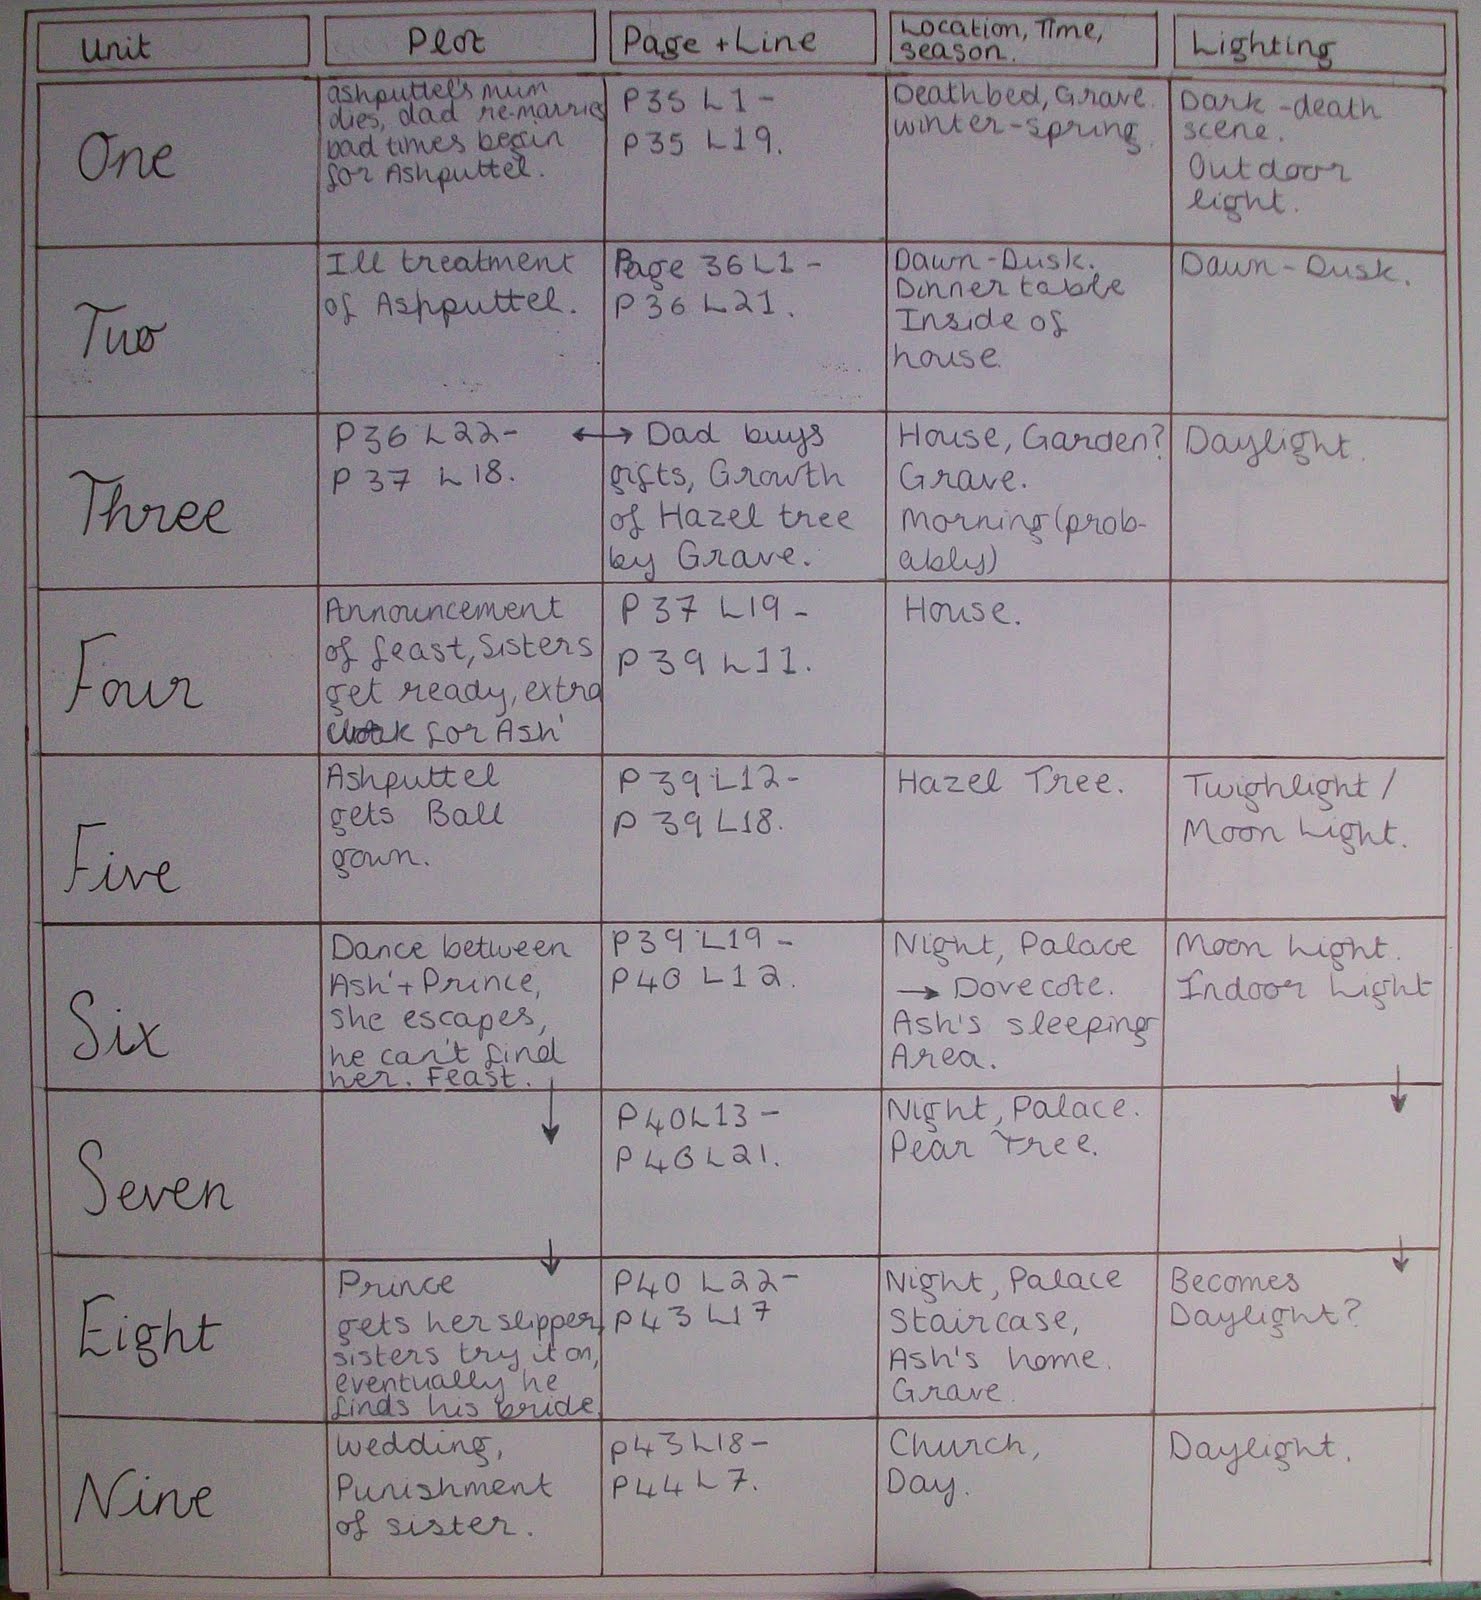 Unit
Plot
Page + Line
Location, Time,
season.
Lighting
One
Ashputtel's mum
dies, dad re-marries
bad times begin
for Ashputtel.
P35 L1 -
P35 L19.
Deathbed, Grave.
winter-spring
Dark - death
scene.
Outdoor
light.
Two
Ill treatment
of Ashputtel.
Page 36 L1 -
P36 L21.
Dawn-Dusk.
Dinner table
Inside of
house.
Dawn-Dusk.
Three
P36 L22-
P37 L18.
↔ Dad buys
gifts, Growth
of Hazel tree
by Grave.
House, Garden?
Grave.
Morning (prob-
ably)
Daylight.
Four
Announcement
of feast, Sisters
get ready, extra
work for Ash'
P37 L19 -
P39 L11.
House.
Five
Ashputtel
gets Ball
gown.
P39 L12-
P39 L18.
Hazel Tree.
Twighlight /
Moon Light.
Six
Dance between
Ash' + Prince,
she escapes,
he can't find
her. Feast.
P39 L19 -
P40 L12.
Night, Palace
→ Dovecote.
Ash's sleeping
Area.
Moon Light.
Indoor Light
Seven
P40 L13 -
P40 L21.
Night, Palace.
Pear Tree.
Eight
Prince
gets her slipper,
sisters try it on,
eventually he
finds his bride.
P40 L22-
P43 L17
Night, Palace
Staircase,
Ash's home.
Grave.
Becomes
Daylight?
Nine
Wedding,
Punishment
of sister.
P43 L18-
P44 L7.
Church,
Day.
Daylight.